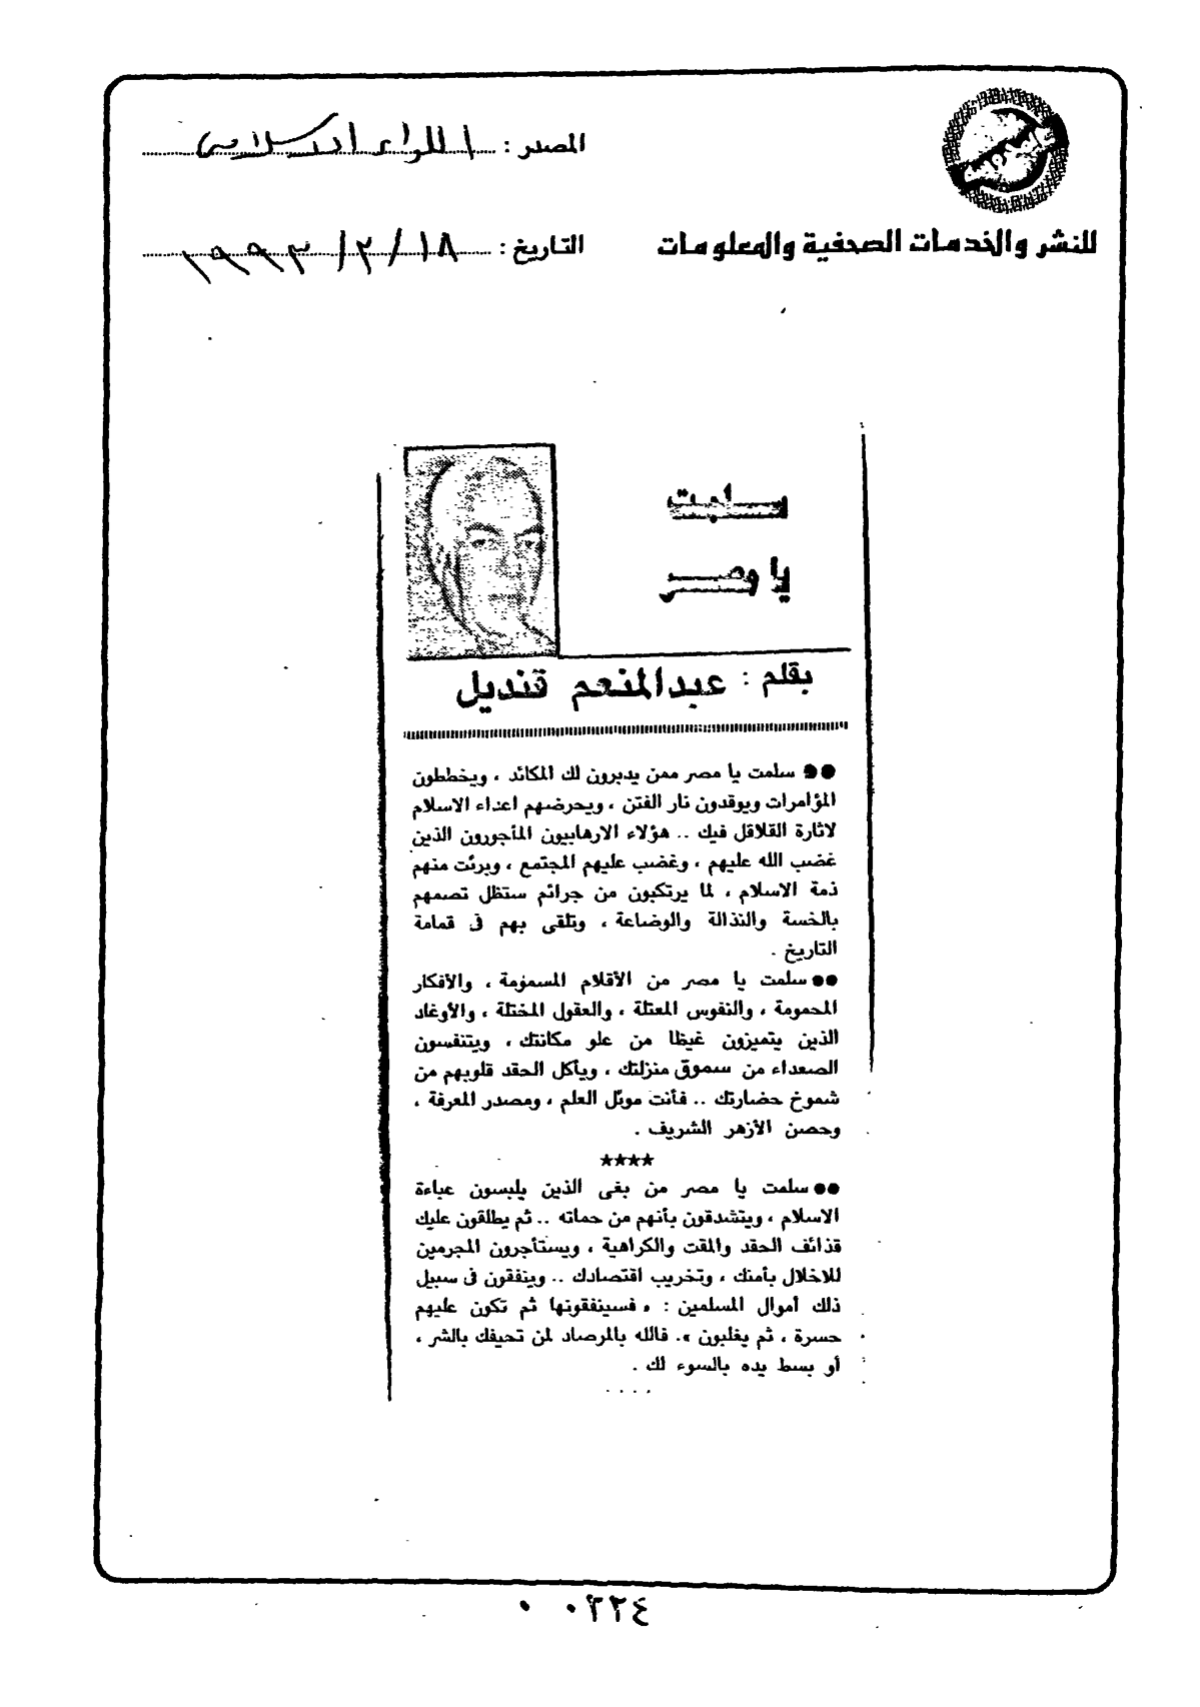 المصدر : اللواء الاسلامى
للنشر والخدمات الصحفية والمعلومات
التاريخ : ١٨/٢/١٩٩٣
سلمت
يا مصر
بقلم : عبدالمنعم قنديل
●● سلمت يا مصر ممن يدبرون لك المكائد ، ويخططون
المؤامرات ويوقدون نار الفتن ، ويحرضهم اعداء الاسلام
لاثارة القلاقل فيك .. هؤلاء الارهابيون المأجورون الذين
غضب الله عليهم ، وغضب عليهم المجتمع ، وبرئت منهم
ذمة الاسلام ، لما يرتكبون من جرائم ستظل تصمهم
بالخسة والنذالة والوضاعة ، وتلقى بهم فى قمامة
التاريخ .
●● سلمت يا مصر من الأقلام المسمومة ، والأفكار
المحمومة ، والنفوس المعتلة ، والعقول المختلة ، والأوغاد
الذين يتميزون غيظا من علو مكانتك ، ويتنفسون
الصعداء من سموق منزلتك ، ويأكل الحقد قلوبهم من
شموخ حضارتك .. فأنت موئل العلم ، ومصدر المعرفة ،
وحصن الأزهر الشريف .
★★★★
●● سلمت يا مصر من بغى الذين يلبسون عباءة
الاسلام ، ويتشدقون بأنهم من حماته .. ثم يطلقون عليك
قذائف الحقد والمقت والكراهية ، ويستأجرون المجرمين
للاخلال بأمنك ، وتخريب اقتصادك .. وينفقون فى سبيل
ذلك أموال المسلمين : « فسينفقونها ثم تكون عليهم
حسرة ، ثم يغلبون ». فالله بالمرصاد لمن تحيفك بالشر ،
أو بسط يده بالسوء لك .